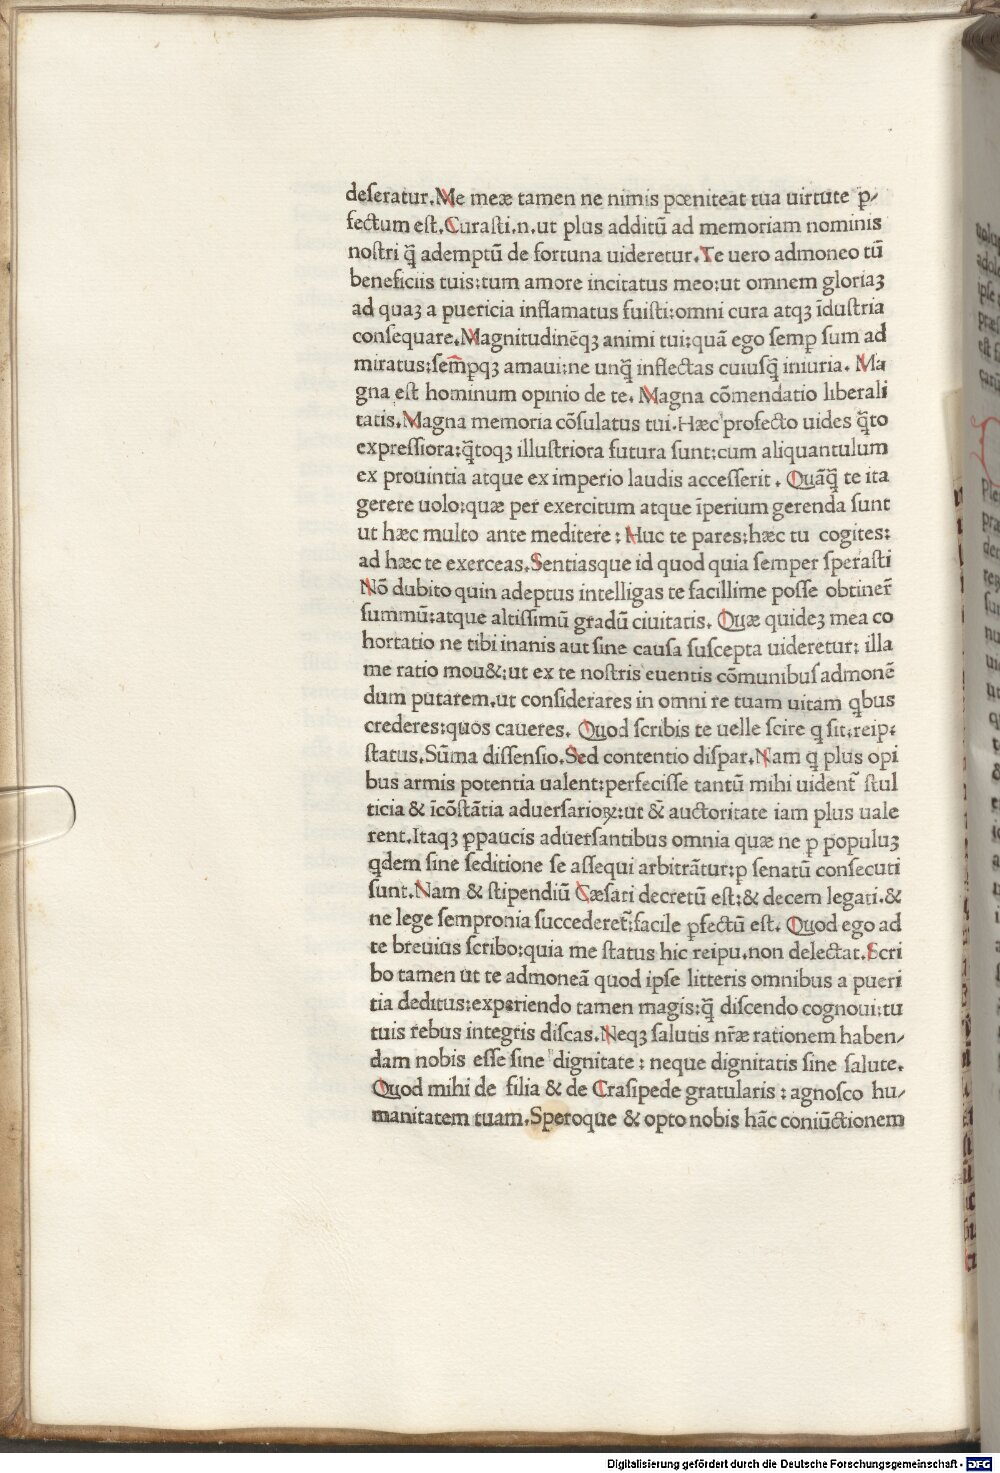 deſeratur.Me meæ tamen ne nimis pœniteat tua uirtute ꝑ⸗
fectum eſt.Curaſti.n.ut plus additũ ad memoriam nominis
noſtri q̃ ademptũ de fortuna uideretur.Te uero admoneo tũ
beneficiis tuis:tum amore incitatus meo:ut omnem gloriaꝫ
ad quaꝫ a puericia inflamatus fuiſti:omni cura atqꝫ ĩduſtria
conſequare.Magnitudinẽqꝫ animi tui:quã ego ſemꝑ ſum ad
miratus:ſem̃ꝑqꝫ amaui:ne unq̃ inflectas cuiuſq̃ iniuria. Ma
gna eſt hominum opinio de te. Magna cõmendatio liberali
tatis.Magna memoria cõſulatus tui.Hæc profecto uides q̃to
expreſſiora:q̃toqꝫ illuſtriora futura ſunt:cum aliquantulum
ex prouintia atque ex imperio laudis acceſſerit. Quãq̃ te ita
gerere uolo:quæ per exercitum atque ĩperium gerenda ſunt
ut hæc multo ante meditere: Huc te pares:hæc tu cogites:
ad hæc te exerceas.Sentiasque id quod quia ſemper ſperaſti
Nõ dubito quin adeptus intelligas te facillime poſſe obtiner̃
ſummũ:atque altiſſimũ gradũ ciuitatis. Quæ quideꝫ mea co
hortatio ne tibi inanis aut ſine cauſa ſuſcepta uideretur: illa
me ratio mou&:ut ex te noſtris euentis cõmunibuſ admonẽ
dum putarem.ut conſiderares in omni re tuam uitam q̇bus
crederes:quos caueres. Quod ſcribis te uelle ſcire q̇ ſit:reip:
ſtatus.Sũma diſſenſio.Sed contentio diſpar.Nam q̇ plus opi
bus armis potentia ualent:perfeciſſe tantũ mihi uident̃ ſtul
ticia & ĩcõſtãtia aduerſarioꝝ:ut & auctoritate iam plus uale
rent.Itaqꝫ ꝑpaucis aduerſantibus omnia quæ ne ꝑ populuꝫ
q̇dem ſine ſeditione ſe aſſequi arbitrãtur:ꝑ ſenatũ conſecuti
ſunt.Nam & ſtipendiũ Cæſari decretũ eſt:& decem legati.&
ne lege ſempronia ſuccederet̃:facile ꝑfectũ eſt. Quod ego ad
te breuius ſcribo:quia me ſtatus hic reipu.non delectat.Scri
bo tamen ut te admoneã quod ipſe litteris omnibus a pueri
tia deditus:experiendo tamen magis:q̃ diſcendo cognoui:tu
tuis rebus integris diſcas.Neqꝫ ſalutis nr̃æ rationem haben⸗
dam nobis eſſe ſine dignitate: neque dignitatis ſine ſalute.
Quod mihi de filia & de Craſipede gratularis: agnoſco hu⸗
manitatem tuam.Speroque & opto nobis hãc coniũctionem
Digitalisierung gefördert durch die Deutsche Forschungsgemeinschaft - DFG